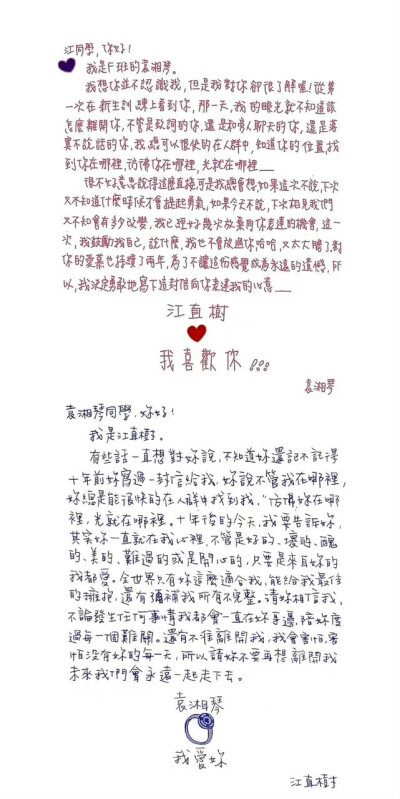 江同學，你好！
我是F班的袁湘琴。
我想你並不認識我，但是我對你卻很了解喔！從第
一次在新生訓練上看到你，那一天，我的眼光就不知道該
怎麼離開你，不管是致詞的你，還是和旁人聊天的你，還是落
寞不說話的你，我總可以很快的在人群中，知道你的位置，找
到你在哪裡，彷彿你在哪裡，光就在哪裡——
很不好意思說得這麼直接，可是我總會想，如果這次不說，下次
又不知道什麼時候才會提起勇氣，如果今天不說，下次相見我們
又不知會有多少改變，我已經好幾次放棄向你表達的機會，這一
次，我鼓勵我自己，說什麼，我也不會放過你哈哈，又太大膽了，對
你的愛慕也持續了兩年，為了不讓這份感覺成為永遠的遺憾，所
以，我決定勇敢地寫下這封信向你表達我的心意——
江直樹
我喜歡你！！！
袁湘琴
袁湘琴同學，妳好！
我是江直樹。
有些話一直想對妳說，不知道妳還記不記得
十年前妳寫過一封信給我，妳說不管我在哪裡，
妳總是能很快的在人群中找到我，“彷彿妳在哪
裡，光就在哪裡。十年後的今天，我要告訴妳，
其實妳一直就在我心裡，不管是好的、壞的、醜
的、美的、難過的或是開心的，只要是來自妳的
我都愛。全世界只有妳這麼適合我，能給我最佳
的擁抱，還有彌補我所有不完整。請妳相信我，
不論發生任何事情我都會一直在妳身邊，陪妳度
過每一個難關。還有不准離開我，我會害怕，害
怕沒有妳的每一天，所以請妳不要再想離開我
未來我們會永遠一起走下去。
袁湘琴
我愛妳
江直樹